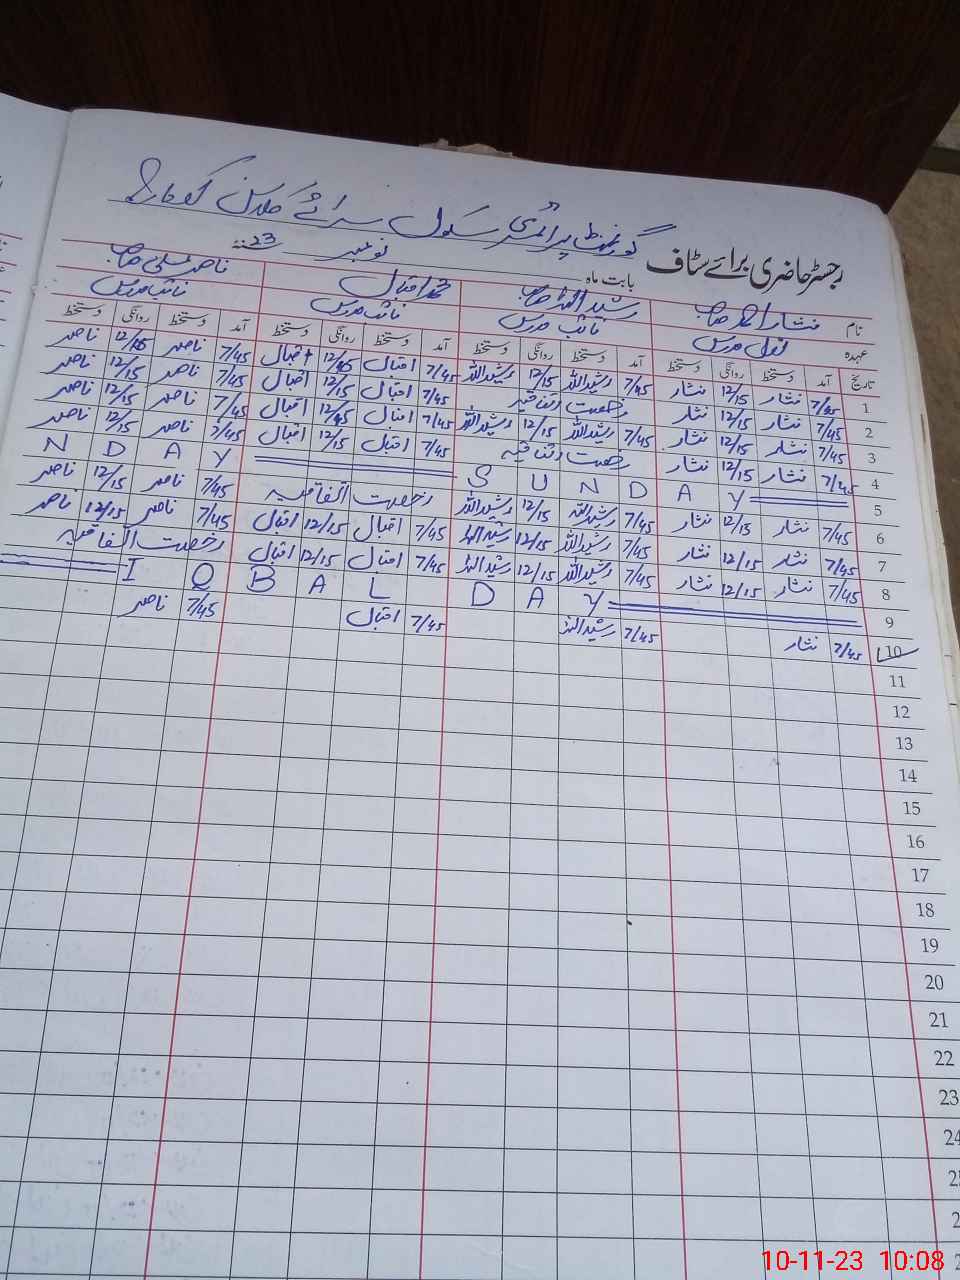 گورنمنٹ پرائمری سکول سرائے
رجسٹر حاضری برائے سٹاف بابت ماہ نومبر 23 سنہ
نام نثار احمد صاحب رشید اللہ صاحب محمد اقبال ناصر علی صاحب
عہدہ اول مدرس نائب مدرس نائب مدرس نائب مدرس
تاریخ آمد دستخط روانگی دستخط آمد دستخط روانگی دستخط آمد دستخط روانگی دستخط آمد دستخط روانگی دستخط
1 7/45 نثار 12/15 نثار 7/45 رشید اللہ 12/15 رشید اللہ 7/45 اقبال 12/15 اقبال 7/45 ناصر 12/15 ناصر
2 7/45 نثار 12/15 نثار رخصت 7/45 اقبال 12/15 اقبال 7/45 ناصر 12/15 ناصر
3 7/45 نثار 12/15 نثار 7/45 رشید اللہ 12/15 رشید اللہ 7/45 اقبال 12/15 اقبال 7/45 ناصر 12/15 ناصر
4 7/45 نثار 12/15 نثار رخصت 7/45 اقبال 12/15 اقبال 7/45 ناصر 12/15 ناصر
5 S U N D A Y N D A Y
6 7/45 نثار 12/15 نثار 7/45 رشید اللہ 12/15 رشید اللہ رخصت اتفاقیہ 7/45 ناصر 12/15 ناصر
7 7/45 نثار 12/15 نثار 7/45 رشید اللہ 12/15 رشید اللہ 7/45 اقبال 12/15 اقبال 7/45 ناصر 12/15 ناصر
8 7/45 نثار 12/15 نثار 7/45 رشید اللہ 12/15 رشید اللہ 7/45 اقبال 12/15 اقبال رخصت اتفاقیہ
9 I Q B A L D A Y
10 7/45 نثار 7/45 رشید اللہ 7/45 اقبال 7/45 ناصر
11
12
13
14
15
16
17
18
19
20
21
22
23
24
10-11-23 10:08